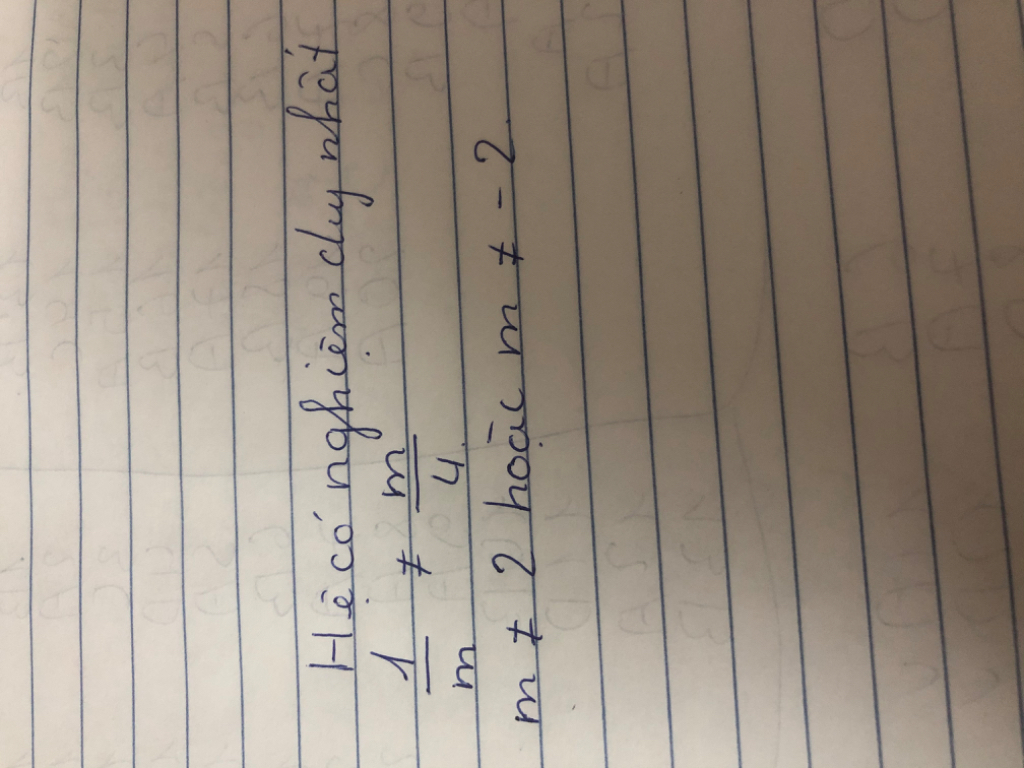 Hệ có nghiệm duy nhất
1/m ≠ m/4
m ≠ 2 hoặc m ≠ -2